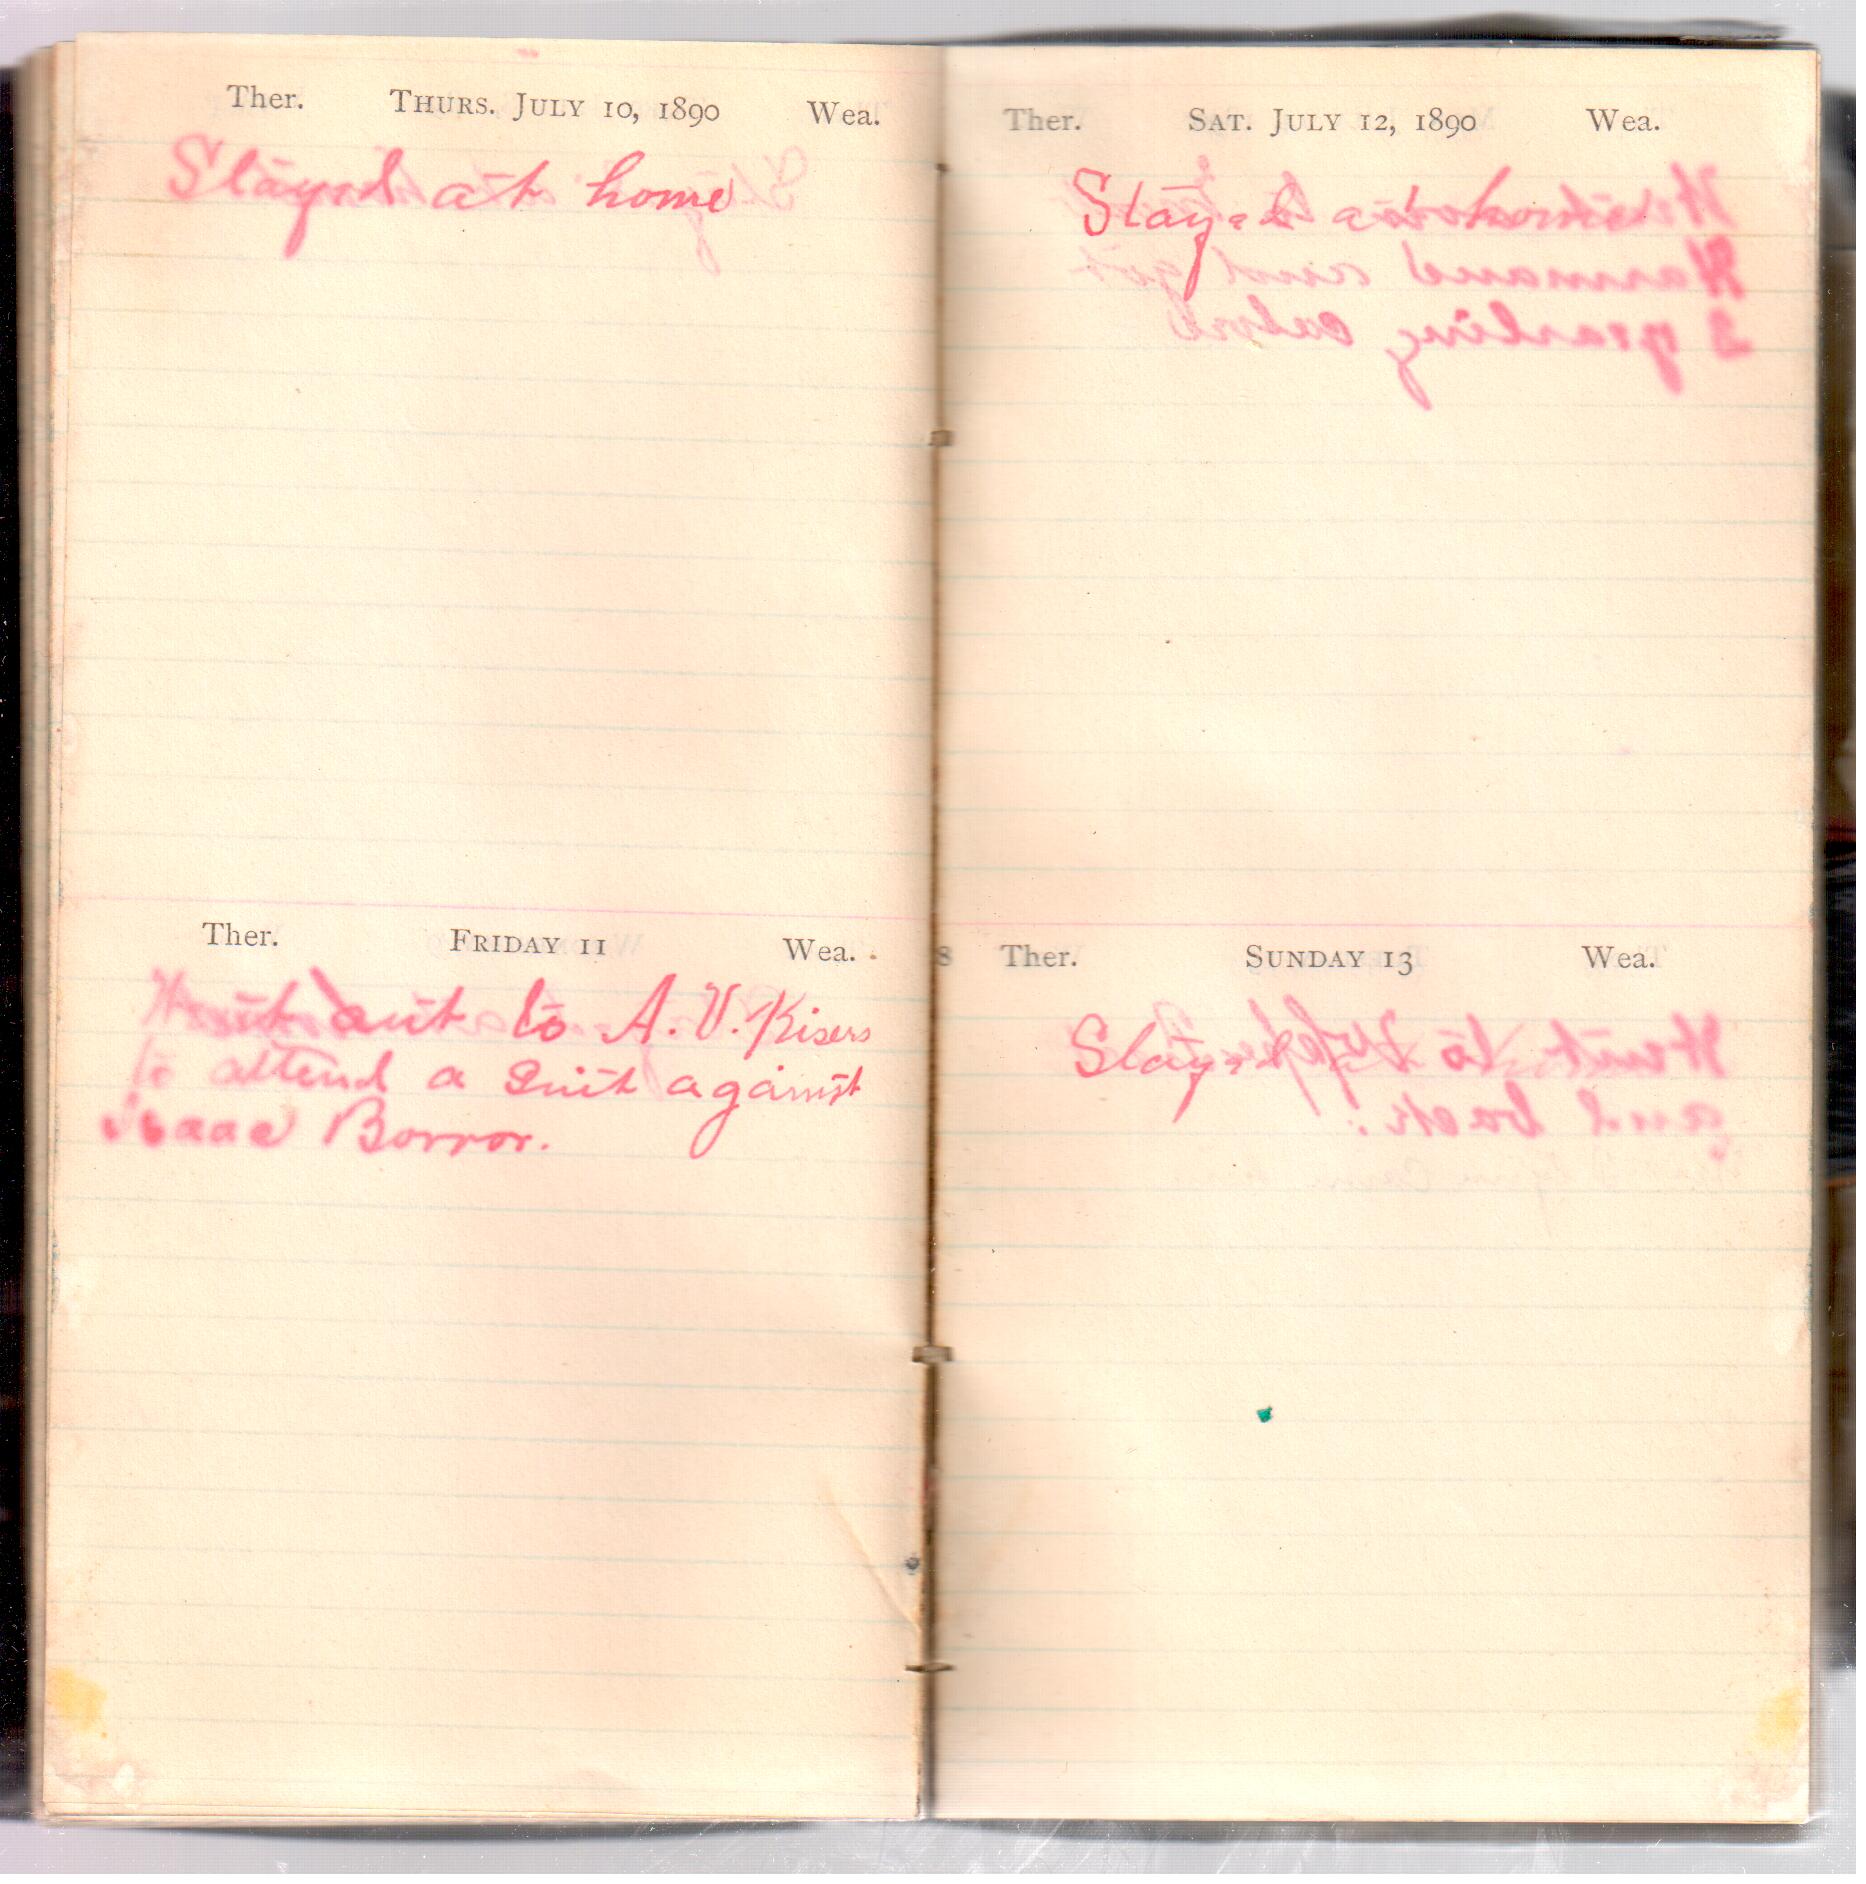 Ther. THURS. JULY 10, 1890 Wea.
Stayed at home
Ther. FRIDAY 11 Wea.
Went out to A. V. Kisers
to attend a suit against
Isaac Borror.
Ther. SAT. JULY 12, 1890 Wea.
Stayed at home
Ther. SUNDAY 13 Wea.
Stayed